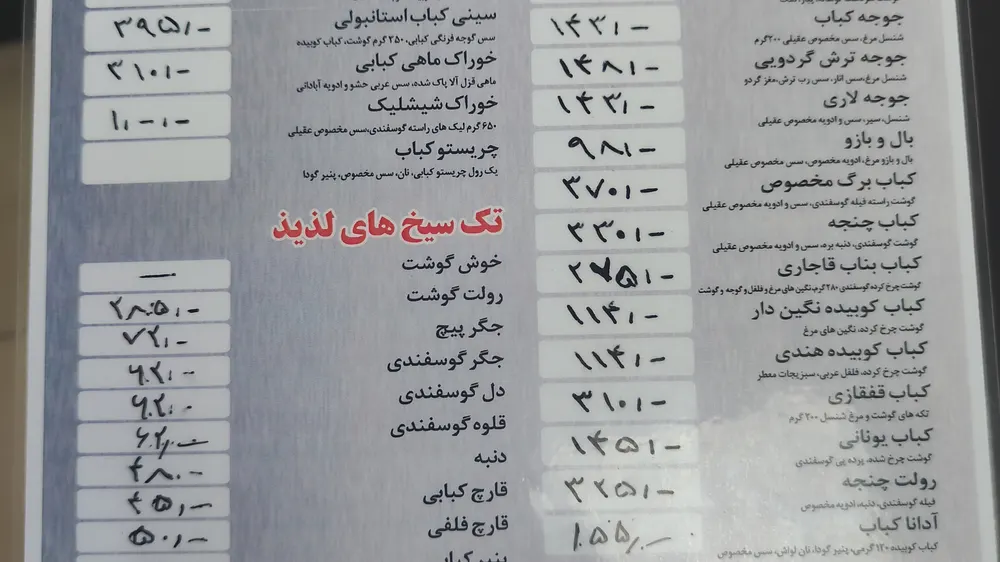 جوجه کباب ۱۴۳/-
شنسل مرغ، سس مخصوص عقیلی ۲۰۰گرم
جوجه ترش گردویی ۱۴۸/-
شنسل مرغ،سس انار، سس رب ترش،مغز گردو
جوجه لاری ۱۴۳/-
شنسل، سیر، سس و ادویه مخصوص عقیلی
بال و بازو ۹۸/-
بال و بازو مرغ، ادویه مخصوص، سس مخصوص عقیلی
کباب برگ مخصوص ۳۷۰/-
گوشت راسته فیله گوسفندی، سس و ادویه مخصوص عقیلی
کباب چنجه ۳۳۰/-
گوشت گوسفندی، دنبه بره، سس و ادویه مخصوص عقیلی
کباب بناب قاجاری
گوشت چرخ کرده گوسفندی ۲۸۰گرم، نگین های مرغ و فلفل و گوجه و گوشت
کباب کوبیده نگین دار ۱۱۴/-
گوشت چرخ کرده، نگین های مرغ
کباب کوبیده هندی ۱۱۴/-
گوشت چرخ کرده، فلفل عربی، سبزیجات معطر
کباب قفقازی ۳۱۰/-
تکه های گوشت و مرغ شنسل ۲۰۰ گرم
کباب یونانی ۱۴۵/-
گوشت چرخ شده، پرده پی گوسفندی
رولت چنجه ۳۲۵/-
فیله گوسفندی، دنبه، ادویه مخصوص
آدانا کباب
کباب کوبیده ۱۲۰ گرمی، پنیر گودا، نان لواش، سس مخصوص
سینی کباب استانبولی ۳۹۵/-
سس گوجه فرنگی کبابی، ۲۵۰ گرم گوشت، کباب کوبیده
خوراک ماهی کبابی ۳۱۰/-
ماهی قزل آلا پاک شده، سس عربی حشو و ادویه آبادانی
خوراک شیشلیک
۶۵۰ گرم لیک های راسته گوسفندی،سس مخصوص عقیلی
چریستو کباب
یک رول چریستو کبابی، نان، سس مخصوص، پنیر گودا
تک سیخ های لذیذ
خوش گوشت —
رولت گوشت ۲۸۵/-
جگر پیچ ۷۲/-
جگر گوسفندی ۶۲/-
دل گوسفندی ۶۲/-
قلوه گوسفندی ۶۲/-
دنبه
قارچ کبابی ۴۵/-
قارچ فلفی ۵۰/-